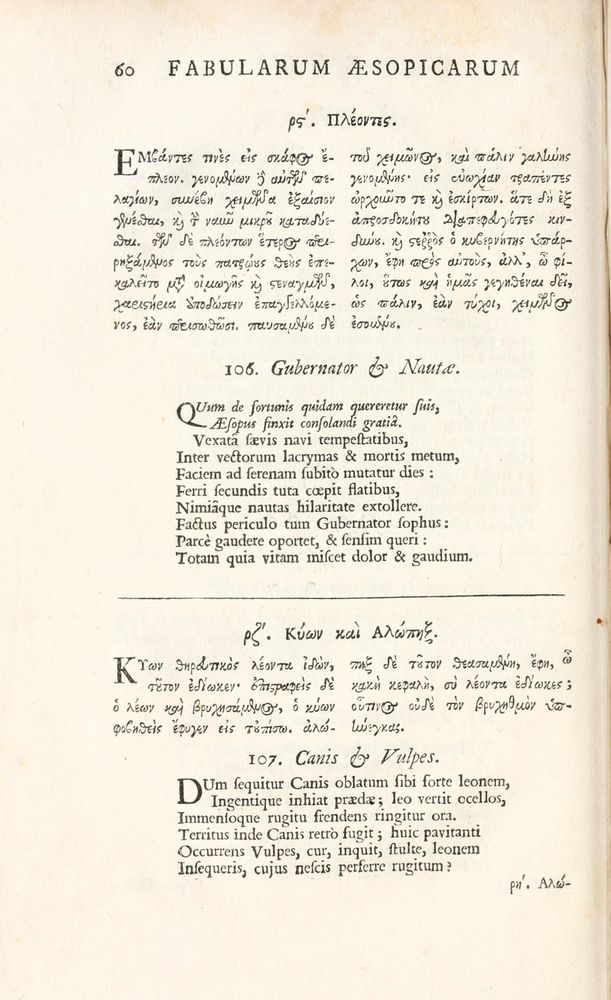 60 FABULARUM ÆSOPICARUM
ρϛ´. Πλέοντες.
ΕΜβάντες τινὲς εἰς σκάφος ἔ-
πλεον. γενομένων δὲ αὐτῶν πε-
λαγίων, συνέβη χειμῶνα ἐξαίσιον
γενέσθαι, καὶ τὴν ναῦν μικροῦ καταδύε-
σθαι. τῶν δὲ πλεόντων ἕτερος περι-
ρηξάμενος τοὺς πατρῴους θεοὺς ἐπε-
καλεῖτο μετ' οἰμωγῆς καὶ στεναγμῶν,
χαριστήρια ἀποδώσειν ἐπαγγελλόμε-
νος, ἐὰν περισωθῶσι. παυσαμένου δὲ
τοῦ χειμῶνος, καὶ πάλιν γαλήνης
γενομένης· εἰς εὐωχίαν τραπέντες
ὠρχοῦντο τε καὶ ἐσκίρτων. ἅτε δὴ ἐξ
ἀπροσδοκήτου διαπεφευγότες κιν-
δύνου. καὶ στεῤῥὸς ὁ κυβερνήτης ὑπάρ-
χων, ἔφη πρὸς αὐτοὺς, ἀλλ', ὦ φί-
λοι, οὕτως καὶ ἡμᾶς γεγηθέναι δεῖ,
ὡς πάλιν, ἐὰν τύχοι, χειμῶνος
ἐσομένου.
106. Gubernator & Nautæ.
QUum de fortunis quidam quereretur suis,
Æsopus finxit consolandi gratiâ.
Vexata sævis navi tempestatibus,
Inter vectorum lacrymas & mortis metum,
Faciem ad serenam subitò mutatur dies:
Ferri secundis tuta cœpit flatibus,
Nimiâque nautas hilaritate extollere.
Factus periculo tum Gubernator sophus:
Parcè gaudere oportet, & sensim queri:
Totam quia vitam miscet dolor & gaudium.
ρζ´. Κύων καὶ Αλώπηξ.
ΚΥων θηρευτικὸς λέοντα ἰδὼν,
τοῦτον ἐδίωκεν· ἐπιστραφεὶς δὲ
ὁ λέων καὶ βρυχησάμενος, ὁ κύων
φοβηθεὶς ἔφυγεν εἰς τοὐπίσω. ἀλώ-
πηξ δὲ τοῦτον θεασαμένη, ἔφη, ὦ
κακὴ κεφαλὴ, σὺ λέοντα ἐδίωκες;
οὗτινος οὐδὲ τὸν βρυχηθμὸν ὑπ-
ήνεγκας.
107. Canis & Vulpes.
DUm sequitur Canis oblatum sibi forte leonem,
Ingentique inhiat prædæ; leo vertit ocellos,
Immensoque rugitu frendens ringitur ora.
Territus inde Canis retrò fugit; huic pavitanti
Occurrens Vulpes, cur, inquit, stulte, leonem
Insequeris, cujus nescis perferre rugitum?
ρη´. Αλώ-